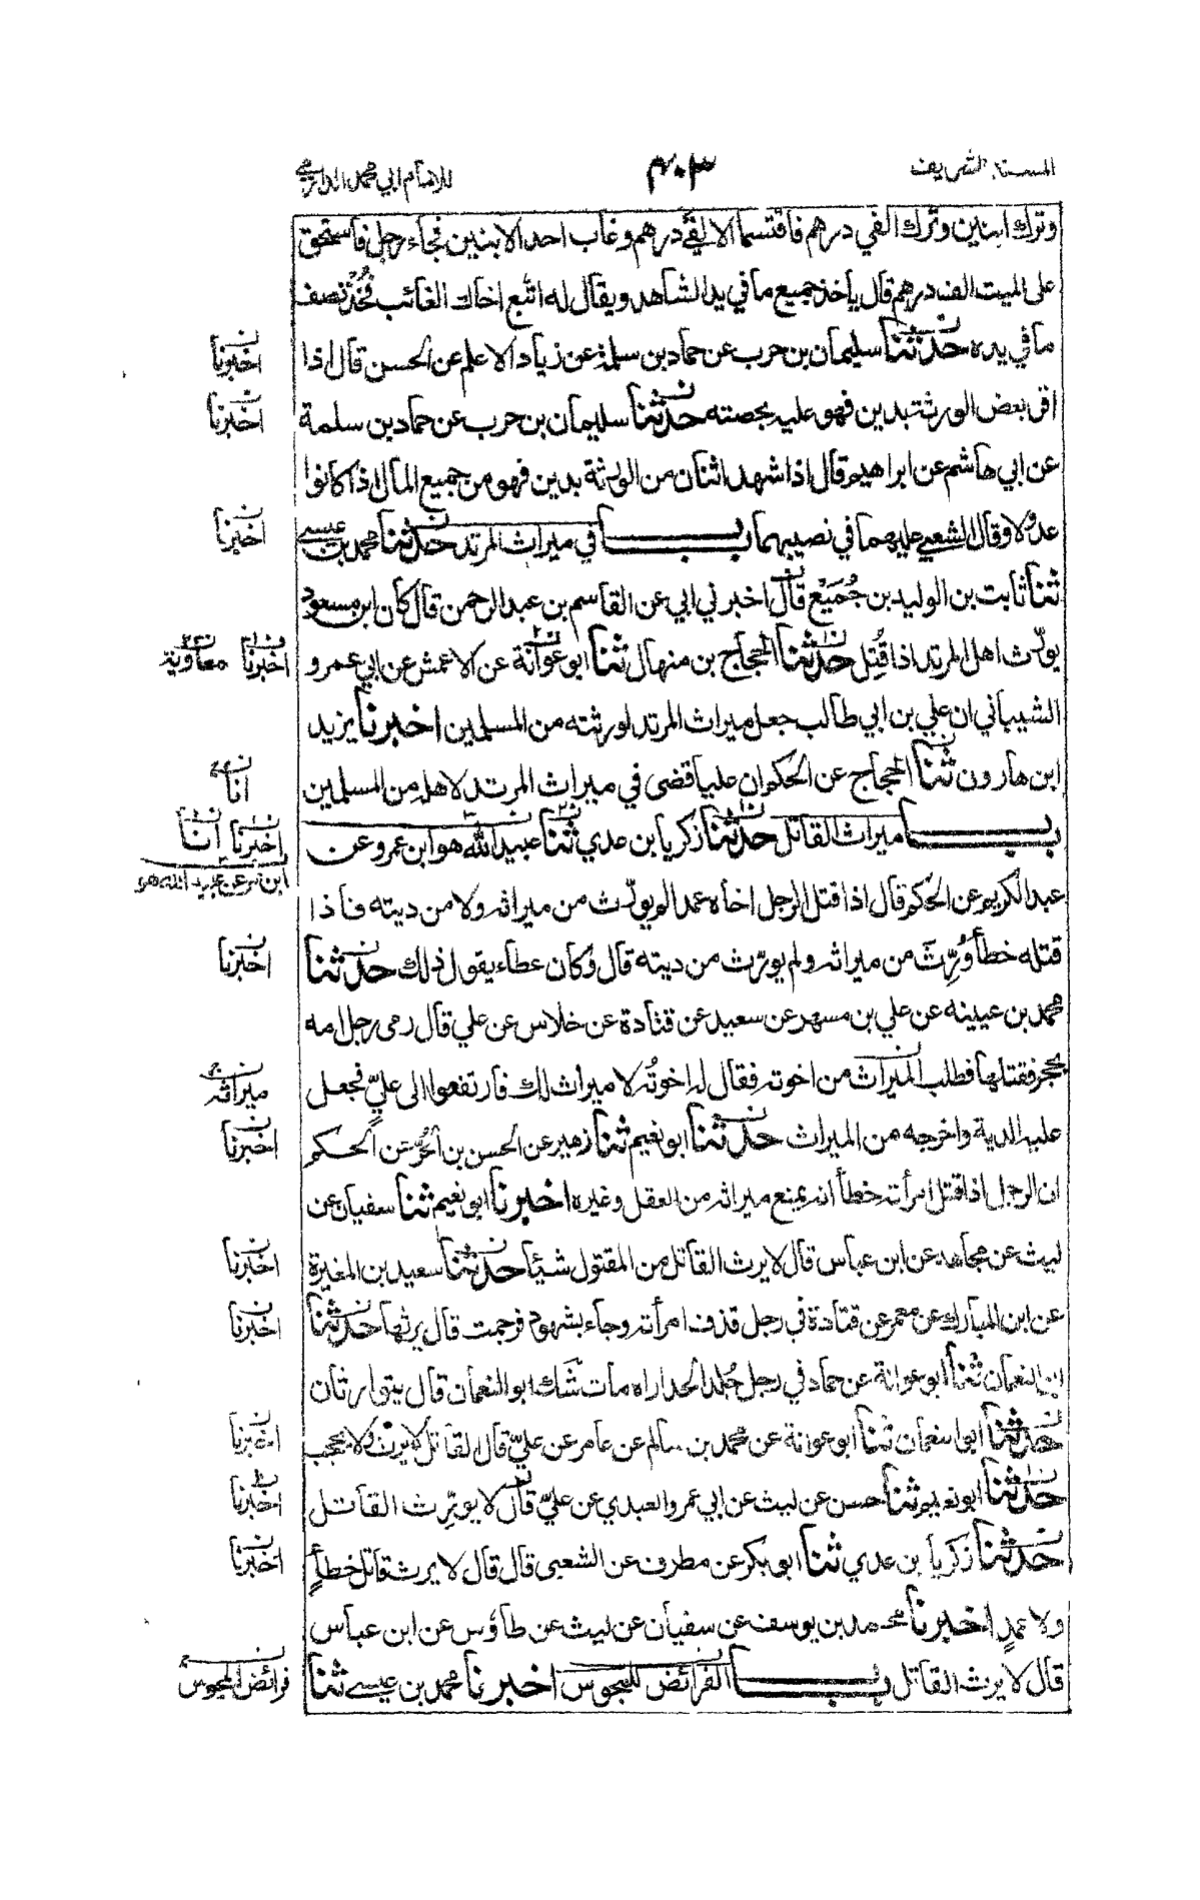 المسند الشريف
٤٠٣
للامام ابي محمد الدارمي
وترك ابنين وترك الفي درهم فاقتسما الالفي درهم وغاب احد الابنين فجاء رجل فاستحق
على الميت الف درهم قال يأخذ جميع ما في يد الشاهد ويقال له اتبع اخاك الغائب فخذ نصف
ما في يده حدثنا سليمان بن حرب عن حماد بن سلمة عن زياد الاعلم عن الحسن قال اذا
اخبرنا
اقر بعض الورثة بدين فهو عليه بحصته حدثنا سليمان بن حرب عن حماد بن سلمة
اخبرنا
عن ابي هاشم عن ابراهيم قال اذا شهد اثنان من الورثة بدين فهو من جميع المال اذا كانوا
عدولا وقال الشعبي عليهما في نصيبهما باب في ميراث المرتد حدثنا محمد بن عيسى
اخبرنا
ثنا ثابت بن الوليد بن جُمَيْع قال اخبرني ابي عن القاسم بن عبد الرحمن قال كان ابن مسعود
يورّث اهل المرتد اذا قُتِل حدثنا الحجاج بن منهال ثنا ابو عوانة عن الاعمش عن ابي عمرو
اخبرنا معاوية
الشيباني ان علي بن ابي طالب جعل ميراث المرتد لورثته من المسلمين اخبرنا يزيد
ابن هارون ثنا الحجاج عن الحكم ان عليا قضى في ميراث المرتد لاهله من المسلمين
انا
باب ميراث القاتل حدثنا زكريا بن عدي ثنا عبيد الله هو ابن عمرو عن
اخبرنا انا
عبد الكريم عن الحكم قال اذا قتل الرجل اخاه عمدا لم يورّث من ميراثه ولا من ديته فاذا
قتله خطأ وُرِّث من ميراثه ولم يورّث من ديته قال وكان عطاء يقول ذلك حدثنا
اخبرنا
محمد بن عيينه عن علي بن مسهر عن سعيد عن قتادة عن خلاس عن علي قال رمى رجل امه
بحجر فقتلها فطلب الميراث من اخوته فقال له اخوتُه لا ميراث لك فارتفعوا الى عليٍّ فجعل
ميراثه
عليه الدية واخرجه من الميراث حدثنا ابو نعيم ثنا زهير عن الحسن بن الحُرّ عن الحكم
اخبرنا
ان الرجل اذا قتل امرأته خطأ انه يمنع ميراثه من العقل وغيره اخبرنا ابو نعيم ثنا سفيان عن
ليث عن مجاهد عن ابن عباس قال لا يرث القاتل من المقتول شيئا حدثنا سعيد بن المغيرة
اخبرنا
عن ابن المبارك عن معمر عن قتادة في رجل قذف امرأته وجاء بشهود فرجمت قال يرثها حدثنا
اخبرنا
ابو النعمان ثنا ابو عوانة عن حماد في رجل جُلد الحد اراه مات شَك ابو النعمان قال يتوارثان
حدثنا ابو النعمان ثنا ابو عوانة عن محمد بن سالم عن عامر عن عليّ قال القاتل لا يرث ولا يحجب
اخبرنا
حدثنا ابو نعيم ثنا حسن عن ليث عن ابي عمرو العبدي عن عليّ قال لا يورّث القاتل
اخبرنا
حدثنا زكريا بن عدي ثنا ابو بكر عن مطرف عن الشعبي قال قال لا يرث قاتل خطأٍ
اخبرنا
ولا عمدٍ اخبرنا محمد بن يوسف عن سفيان عن ليث عن طاؤس عن ابن عباس
قال لا يرث القاتل باب الفرائض للمجوس اخبرنا محمد بن عيسى ثنا
فرائض المجوس